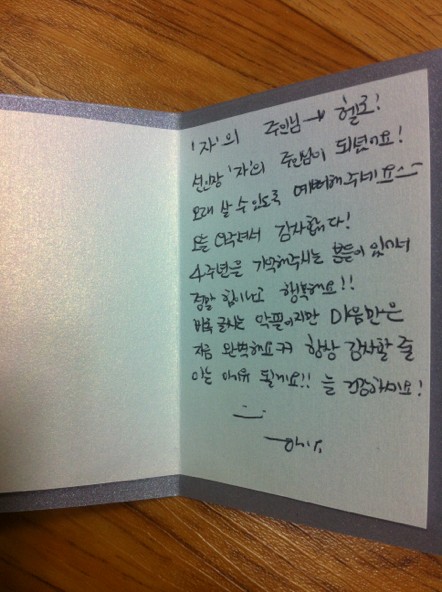 '자'의 주인님→ 헬로!
선인장 '자'의 주인님이 되셨어요!
오래 살 수 있도록 예뻐해주세요
오늘 와주셔서 감사합니다!
4주년을 기억해주시는 분들이 있어서
정말 힘이나고 행복해요!!
비록 글씨는 악필이지만 마음만은
지금 완벽해요ㅋㅋ 항상 감사할 줄
아는 아이유 될게요!! 늘 건강하세요!